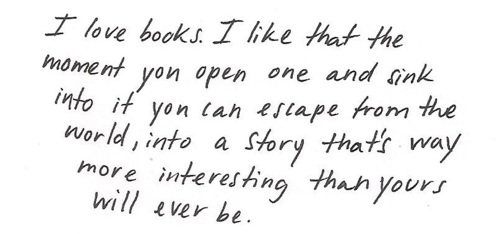 I love books. I like that the
moment you open one and sink
into it you can escape from the
world, into a story that's way
more interesting than yours
will ever be.